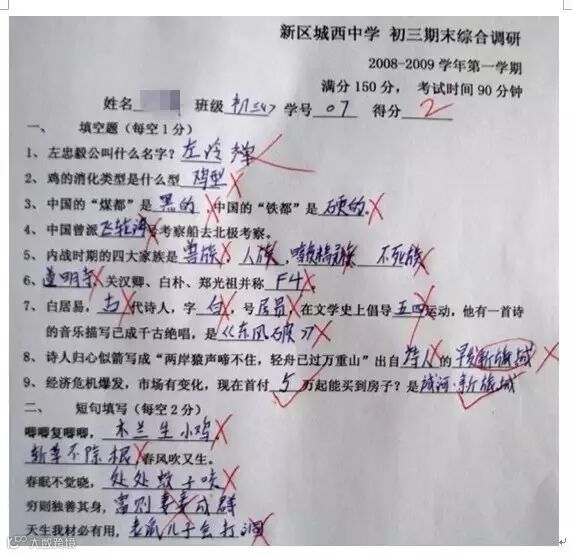 新区城西中学 初三期末综合调研
2008-2009 学年第一学期
满分 150 分， 考试时间 90 分钟
姓名 班级 初三(4) 学号 07 得分 2
一、 填空题（每空 1 分）
1、左忠毅公叫什么名字？左冷禅
2、鸡的消化类型是什么型 鸡型
3、中国的“煤都”是 黑的，中国的“铁都”是 硬的。
4、中国曾派 飞轮海号考察船去北极考察。
5、内战时期的四大家族是 兽族、人族、暗夜精灵族 不死族
6、道明寺、关汉卿、白朴、郑光祖并称 F4。
7、白居易，古代诗人，字 白，号 居易，在文学史上倡导 五四运动，他有一首诗
的音乐描写已成千古绝唱，是《东风破》
8、诗人归心似箭写成“两岸猿声啼不住，轻舟已过万重山”出自 诗人 的 早新旗城
9、经济危机爆发，市场有变化，现在首付 5 万起能买到房子？是 域河·新旗城
二、 短句填写（每空 2 分）
唧唧复唧唧， 木兰生小鸡
斩草不除根，春风吹又生。
春眠不觉晓， 处处蚊子咬
穷则独善其身，富则妻妾成群
天生我材必有用，老鼠儿子会打洞
大数跨境